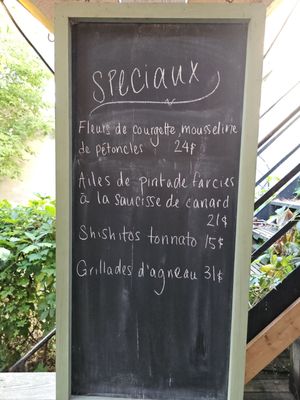 SPECIAUX
Fleurs de courgette, mousseline
de pétoncles 24$
Ailes de pintade farcies
à la saucisse de canard
21$
Shishitos tonnato 15$
Grillades d'agneau 31$